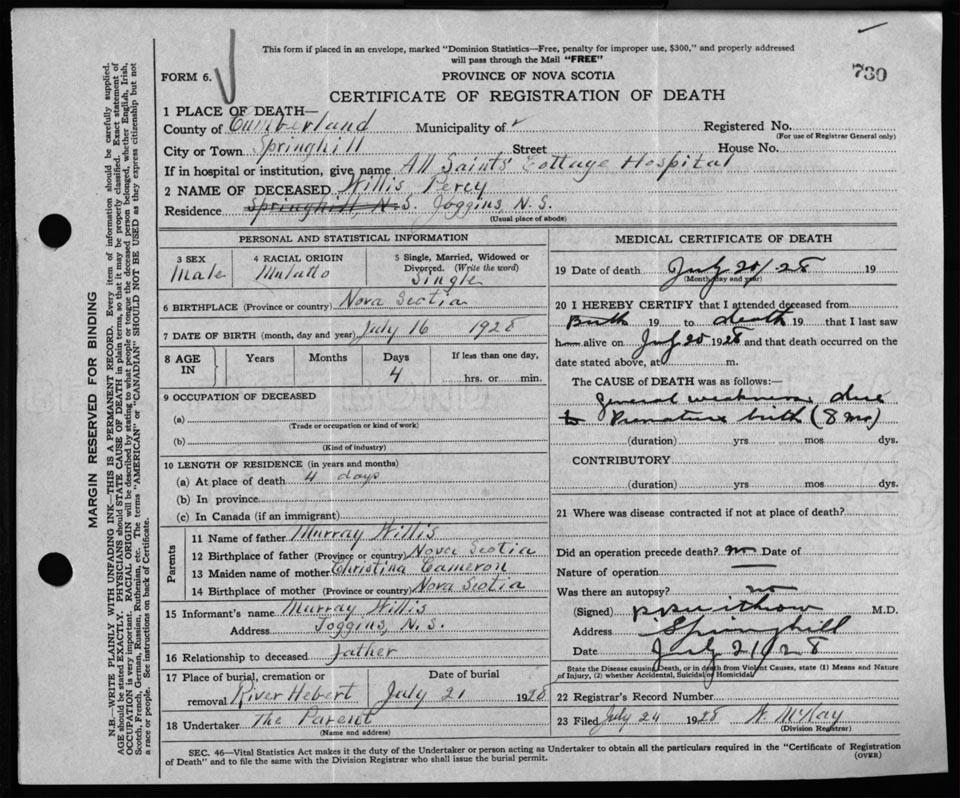 This form if placed in an envelope, marked "Dominion Statistics—Free, penalty for improper use, $300," and properly addressed
will pass through the Mail "FREE"
730
FORM 6.
PROVINCE OF NOVA SCOTIA
CERTIFICATE OF REGISTRATION OF DEATH
1 PLACE OF DEATH—
County of Cumberland Municipality of Registered No.
(For use of Registrar General only)
City or Town Springhill Street House No.
If in hospital or institution, give name All Saints' Cottage Hospital
2 NAME OF DECEASED Willis Percy
Residence Springhill, N.S. Joggins, N. S.
(Usual place of abode)
PERSONAL AND STATISTICAL INFORMATION
3 SEX 4 RACIAL ORIGIN 5 Single, Married, Widowed or
Divorced. (Write the word)
Male Mulatto Single
6 BIRTHPLACE (Province or country) Nova Scotia
7 DATE OF BIRTH (month, day and year) July 16 1928
8 AGE IN Years Months Days If less than one day,
4 hrs. or min.
9 OCCUPATION OF DECEASED
(a)
(Trade or occupation or kind of work)
(b)
(Kind of industry)
10 LENGTH OF RESIDENCE (in years and months)
(a) At place of death 4 days
(b) In province
(c) In Canada (if an immigrant)
Parents
11 Name of father Murray Willis
12 Birthplace of father (Province or country) Nova Scotia
13 Maiden name of mother Christina Cameron
14 Birthplace of mother (Province or country) Nova Scotia
15 Informant's name Murray Willis
Address Joggins, N. S.
16 Relationship to deceased father
17 Place of burial, cremation or Date of burial
removal River Hebert July 21 1928
18 Undertaker The Parent
(Name and address)
MEDICAL CERTIFICATE OF DEATH
19 Date of death July 20/28 19
(Month, day and year)
20 I HEREBY CERTIFY that I attended deceased from
Birth 19 to death 19 that I last saw
h alive on July 20 1928 and that death occurred on the
date stated above, at m.
The CAUSE of DEATH was as follows:—
General weakness due
to Premature birth (8 mo)
(duration) yrs mos dys.
CONTRIBUTORY
(duration) yrs. mos. dys.
21 Where was disease contracted if not at place of death?
Did an operation precede death? no Date of
Nature of operation
Was there an autopsy? no
(Signed) M.D.
Address Springhill
Date July 21/28
State the Disease causing Death, or in death from Violent Causes, state (1) Means and Nature
of Injury, (2) whether Accidental, Suicidal or Homicidal
22 Registrar's Record Number
23 Filed July 24 1928 McKay
(Division Registrar)
SEC. 46—Vital Statistics Act makes it the duty of the Undertaker or person acting as Undertaker to obtain all the particulars required in the "Certificate of Registration
of Death" and to file the same with the Division Registrar who shall issue the burial permit.
(OVER)
MARGIN RESERVED FOR BINDING
N.B.—WRITE PLAINLY WITH UNFADING INK—THIS IS A PERMANENT RECORD. Every item of information should be carefully supplied.
AGE should be stated EXACTLY. PHYSICIANS should STATE CAUSE OF DEATH in plain terms, so that it may be properly classified. Exact statement of
OCCUPATION is very important. RACIAL ORIGIN will be described by stating to what people or tongue the deceased person belonged, whether English, Irish,
Scotch, French, German, Russian, Ruthenian, etc. The terms "AMERICAN" or "CANADIAN" SHOULD NOT BE USED as they express citizenship but not
a race or people. See instructions on back of Certificate.